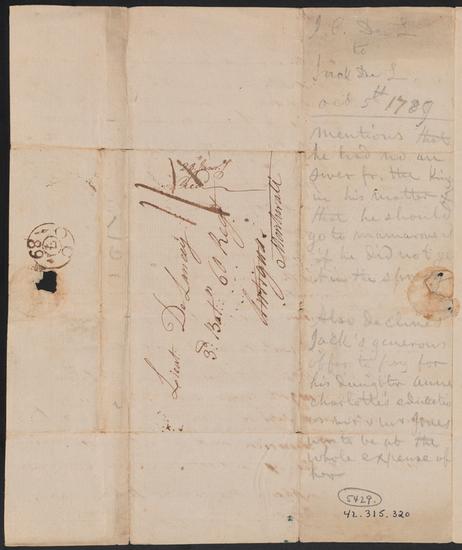 J. P. De L
to
Jack De L.
Oct 5th 1789
Mentions that
he had no an
swer fr. the King
in his matter &
that he should
go to
if he did not ge
t it in the
Also declines
Jack's generous
offer to pay for
his daughter Anne
Charlotte's educatio
n Mrs. & Mr. Jones
to be at the
whole expense of
her
5429.
42.315.320
Lieut De Lancey
3d. Batn. 60 Regt
Antigua
89